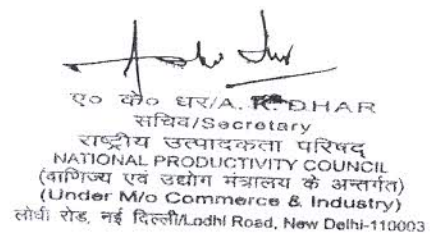 ए० के० धर/A. K. DHAR
सचिव/Secretary
राष्ट्रीय उत्पादकता परिषद्
NATIONAL PRODUCTIVITY COUNCIL
(वाणिज्य एवं उद्योग मंत्रालय के अन्तर्गत)
(Under M/o Commerce & Industry)
लोधी रोड, नई दिल्ली/Lodhi Road, New Delhi-110003